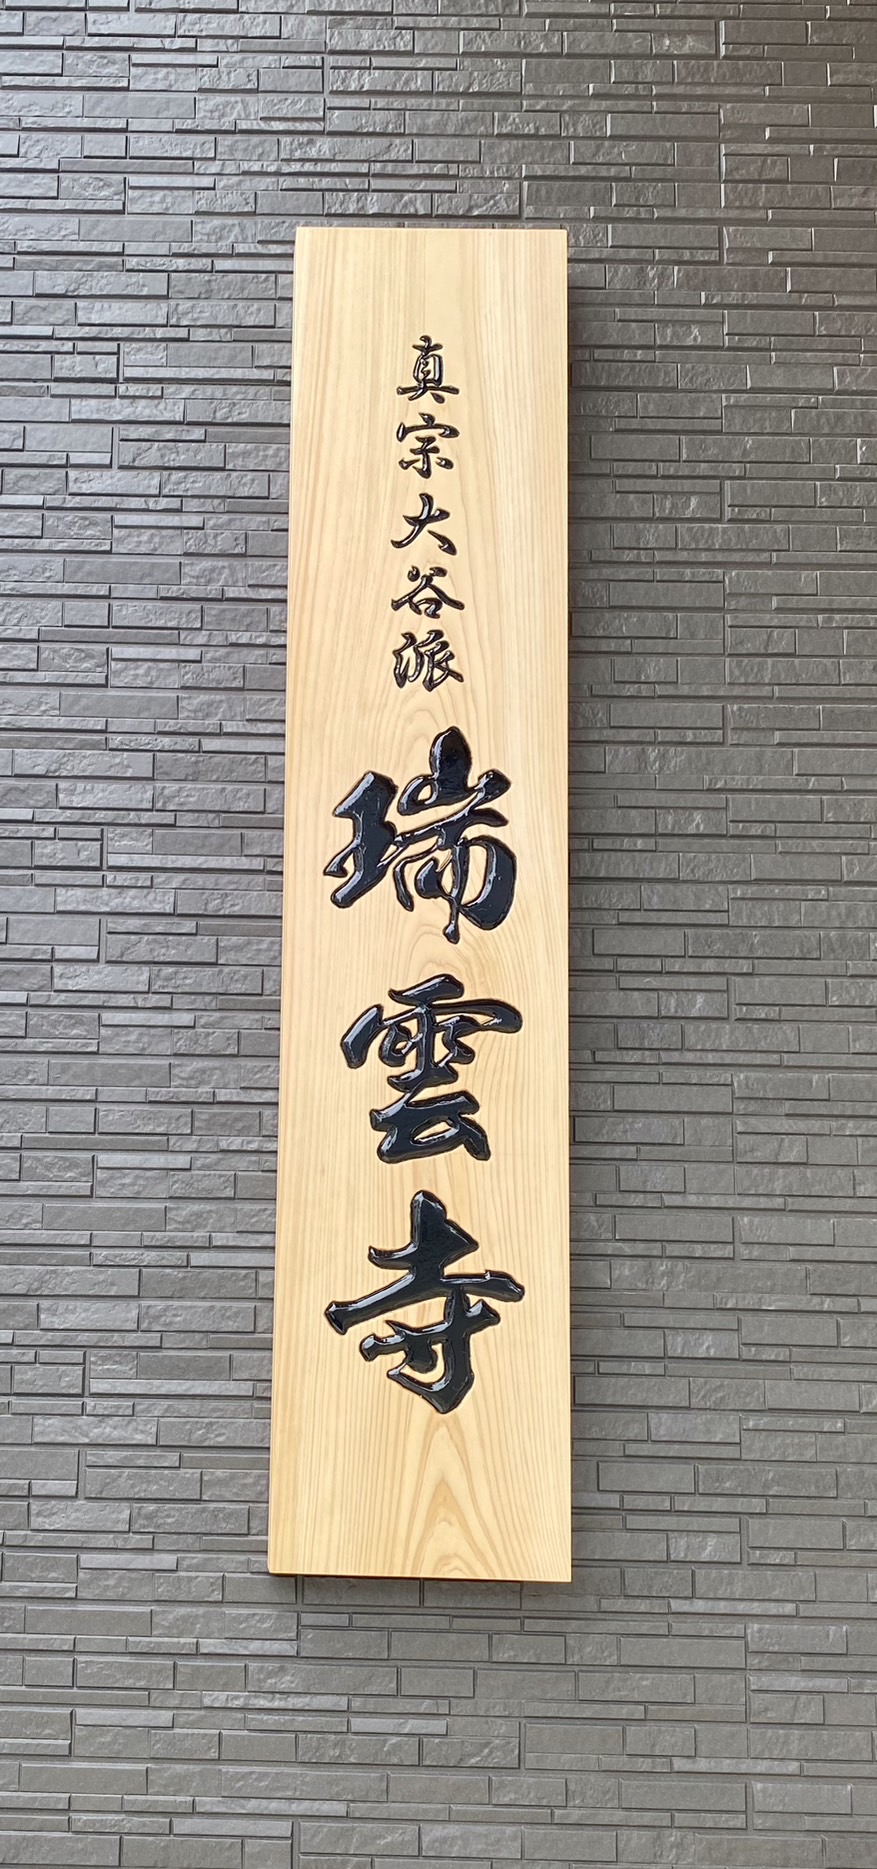 真宗大谷派瑞雲寺